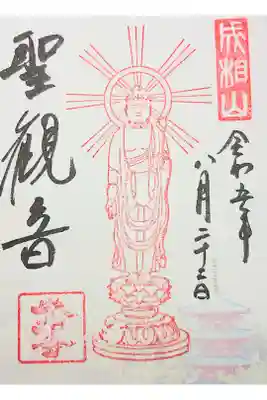 成相山
令和五年
八月二十三日
聖観音